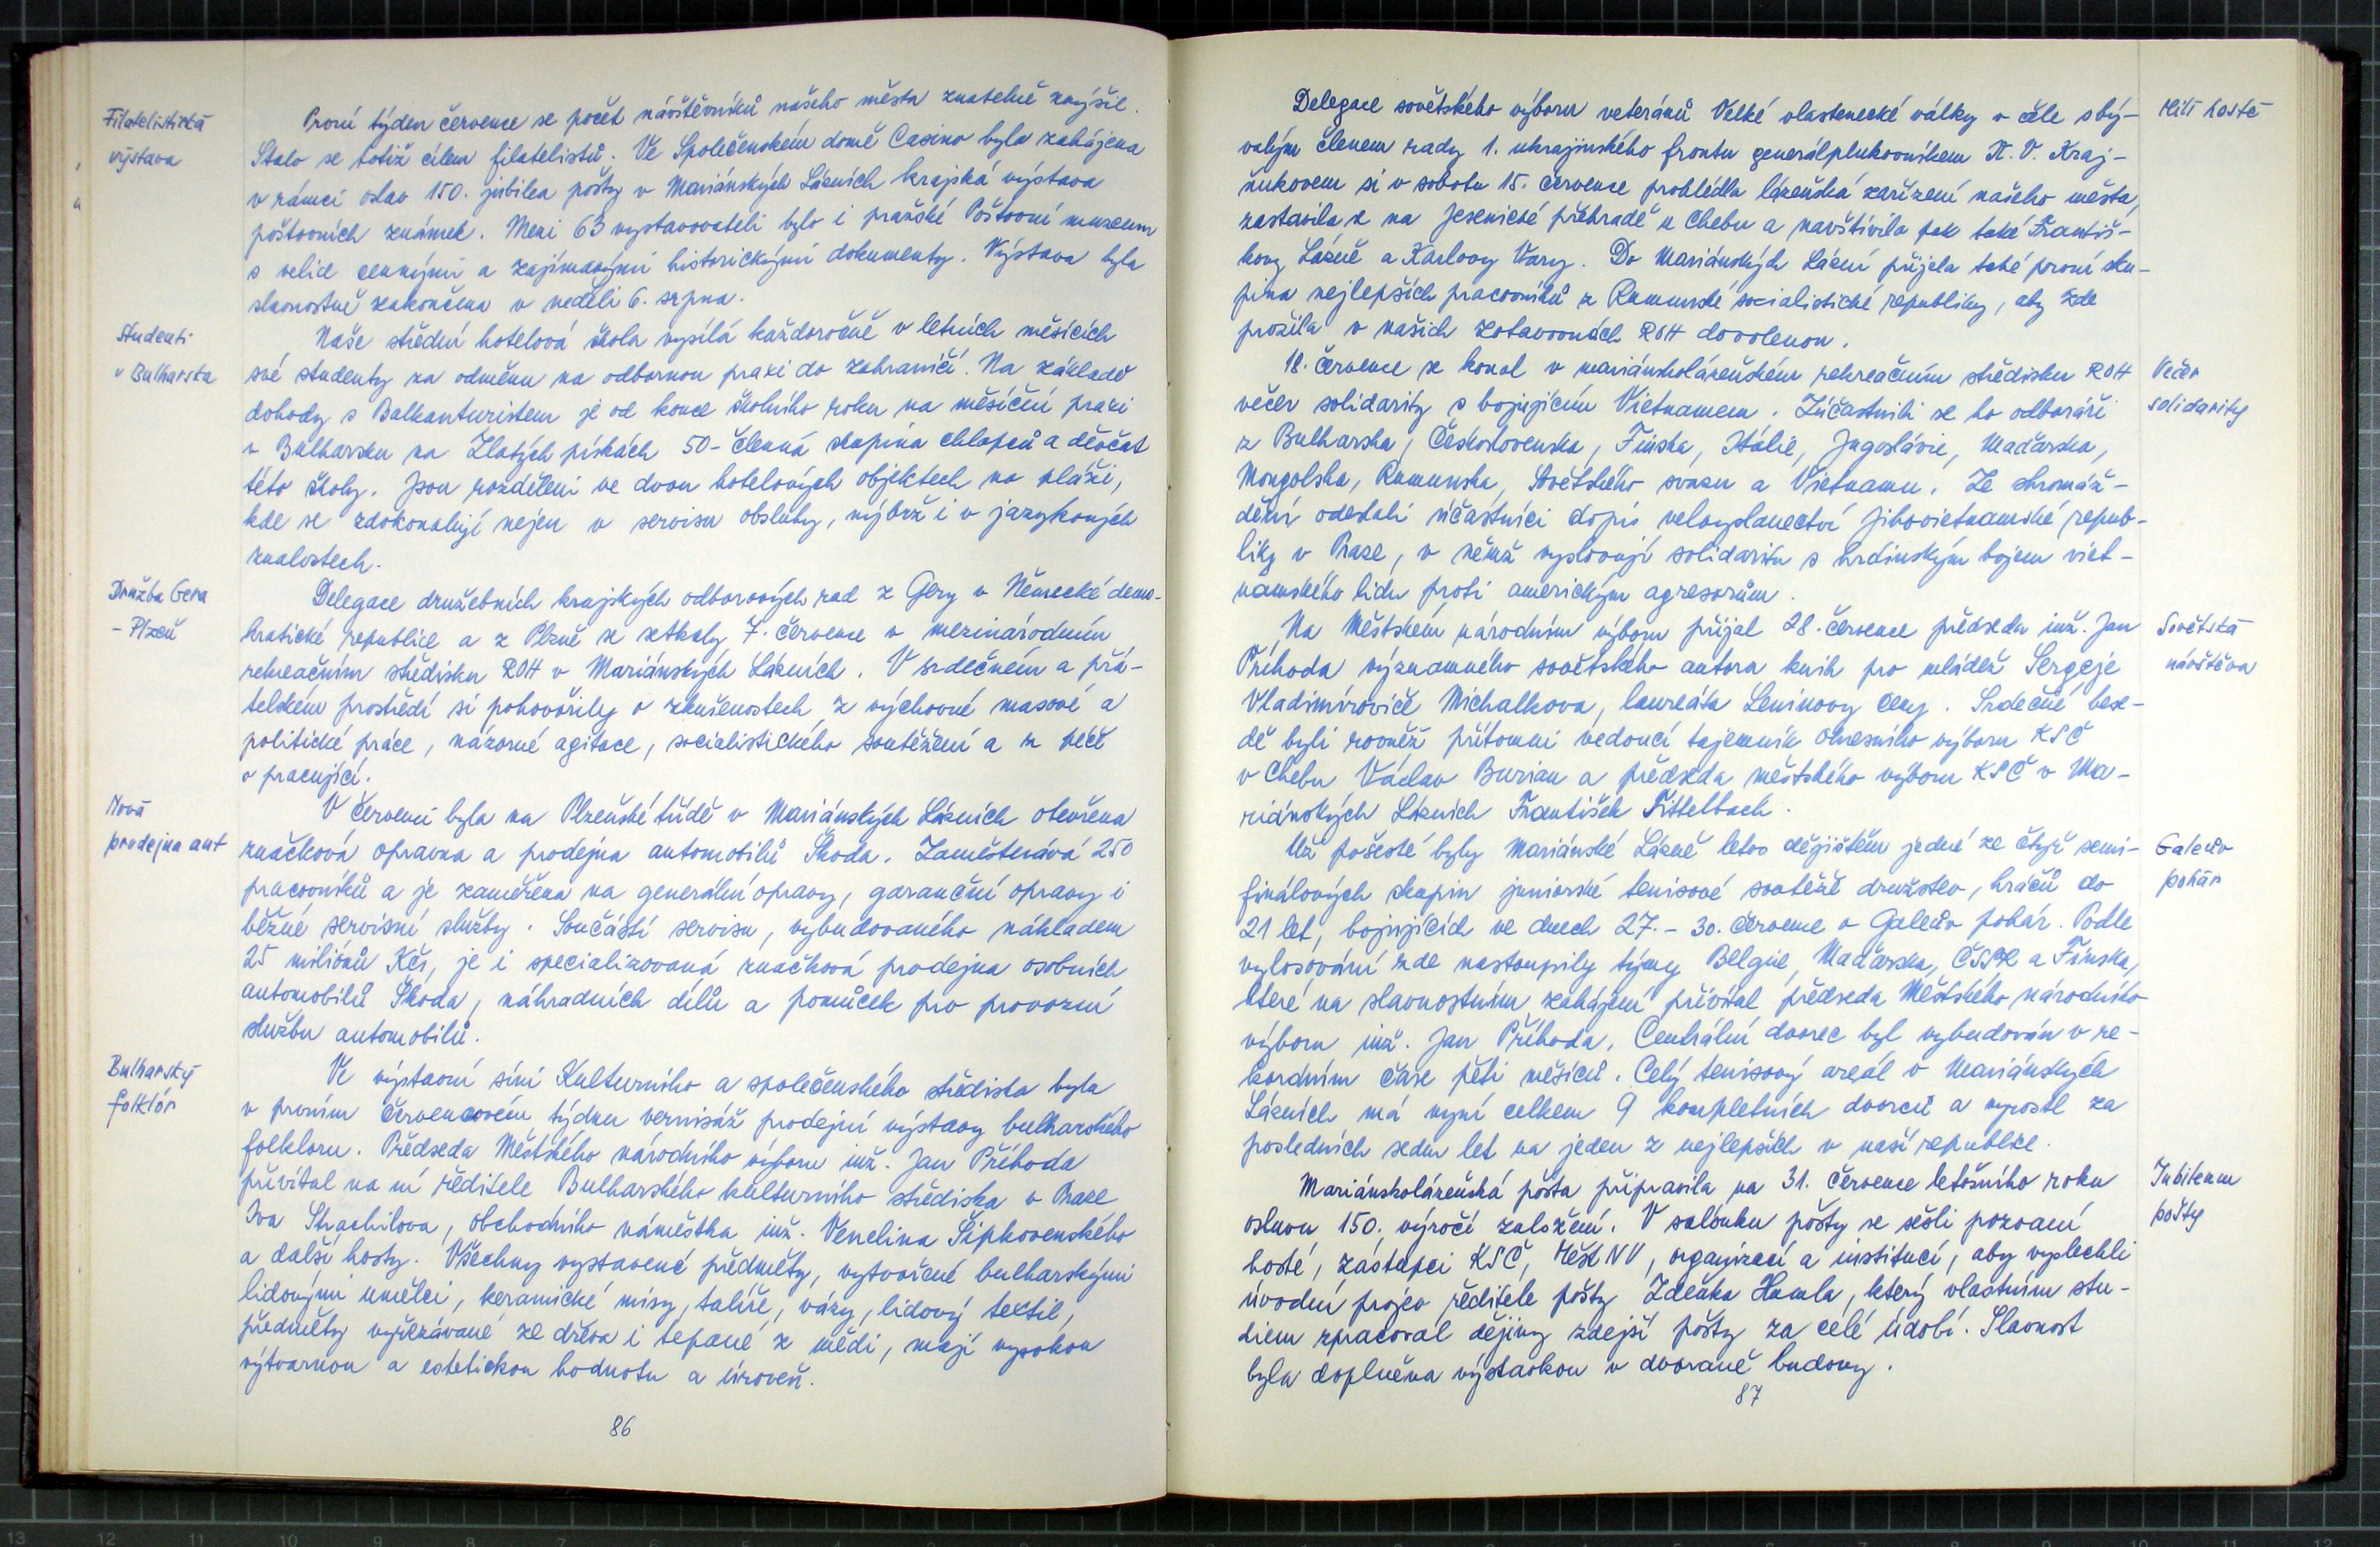 Filatelistická
výstava
První týden července se počet návštěvníků našeho města znatelně zvýšil.
Stalo se totiž cílem filatelistů. Ve Společenském domě Casino byla zahájena
v rámci oslav 150. jubilea pošty v Mariánských Lázních krajská výstava
poštovních známek. Mezi 63 vystavovateli bylo i pražské Poštovní museum
s velice cennými a zajímavými historickými dokumenty. Výstava byla
slavnostně zakončena v neděli 6. srpna.
Studenti
v Bulharsku
Naše střední hotelová škola vysílá každoročně v letních měsících
své studenty za odměnu na odbornou praxi do zahraničí. Na základě
dohody s Balkanturistem je od konce školního roku na měsíční praxi
v Bulharsku na Zlatých pískách 50-členná skupina chlapců a děvčat
této školy. Jsou rozděleni ve dvou hotelových objektech na pláži,
kde se zdokonalují nejen v servisu obsluhy, nýbrž i v jazykových
znalostech.
Družba Gera
- Plzeň
Delegace družebních krajských odborových rad z Gery v Německé demo-
kratické republice a z Plzně se setkaly 7. července v mezinárodním
rekreačním středisku ROH v Mariánských Lázních. V srdečném a přá-
telském prostředí si pohovořily o zkušenostech z výchovné masové a
politické práce, názorné agitace, socialistického soutěžení a z péče
o pracující.
Nová
prodejna aut
V červenci byla na Plzeňské třídě v Mariánských Lázních otevřena
značková opravna a prodejna automobilů Škoda. Zaměstnává 250
pracovníků a je zaměřena na generální opravy, garanční opravy i
běžné servisní služby. Součástí servisu, vybudovaného nákladem
25 miliónů Kčs, je i specializovaná značková prodejna osobních
automobilů Škoda, náhradních dílů a pomůcek pro provozní
službu automobilů.
Bulharský
folklór
Ve výstavní síni Kulturního a společenského střediska byla
v prvním červencovém týdnu vernisáž prodejní výstavy bulharského
folkloru. Předseda Městského národního výboru inž. Jan Příhoda
přivítal na ní ředitele Bulharského kulturního střediska v Praze
Iva Strachilova, obchodního náměstka inž. Venelina Šipkovenského
a další hosty. Všechny vystavené předměty, vytvořené bulharskými
lidovými umělci, keramické mísy, talíře, vázy, lidový textil,
předměty vyřezávané ze dřeva i tepané z mědi, mají vysokou
výtvarnou a estetickou hodnotu a úroveň.
86
Delegace sovětského výboru veteránů Velké vlastenecké války v čele s bý-
valým členem rady 1. ukrajinského frontu generálplukovníkem K. V. Kraj-
ňukovem si v sobotu 15. července prohlédla lázeňská zařízení našeho města,
zastavila se na Jesenické přehradě u Chebu a navštívila pak také Františ-
kovy Lázně a Karlovy Vary. Do Mariánských Lázní přijela také první sku-
pina nejlepších pracovníků z Rumunské socialistické republiky, aby zde
prožila v našich zotavovnách ROH dovolenou.
Milí hosté
18. července se konal v mariánskolázeňském rekreačním středisku ROH
večer solidarity s bojujícím Vietnamem. Zúčastnili se ho odboráři
z Bulharska, Československa, Finska, Itálie, Jugoslávie, Maďarska,
Mongolska, Rumunska, Sovětského svazu a Vietnamu. Ze shromáž-
dění odeslali účastníci dopis velvyslanectví Jihovietnamské repub-
liky v Praze, v němž vyslovují solidaritu s hrdinským bojem viet-
namského lidu proti americkým agresorům.
Večer
solidarity
Na Městském národním výboru přijal 28. července předseda inž. Jan
Příhoda významného sovětského autora knih pro mládež Sergeje
Vladimíroviče Michalkova, laureáta Leninovy ceny. Srdečné bese-
dě byli rovněž přítomni vedoucí tajemník Okresního výboru KSČ
v Chebu Václav Burian a předseda městského výboru KSČ v Ma-
riánských Lázních František Tittelbach.
Sovětská
návštěva
Už pošesté byly Mariánské Lázně letos dějištěm jedné ze čtyř semi-
finálových skupin juniorské tenisové soutěže družstev, hráčů do
21 let, bojujících ve dnech 27.- 30. července o Galeův pohár. Podle
vylosování zde nastoupily týmy Belgie, Maďarska, ČSSR a Finska,
které na slavnostním zahájení přivítal předseda Městského národního
výboru inž. Jan Příhoda. Centrální dvorec byl vybudován v re-
kordním čase pěti měsíců. Celý tenisový areál v Mariánských
Lázních má nyní celkem 9 kompletních dvorců a vyrostl za
posledních sedm let na jeden z nejlepších v naší republice.
Galeův
pohár
Mariánskolázeňská pošta připravila na 31. července letošního roku
oslavu 150. výročí založení. V salónku pošty se sešli pozvaní
hosté, zástupci KSČ, MěstNV, organizací a institucí, aby vyslechli
úvodní projev ředitele pošty Zdeňka Hamla, který vlastním stu-
diem zpracoval dějiny zdejší pošty za celé údobí. Slavnost
byla doplněna výstavkou v dvoraně budovy.
Jubileum
pošty
87